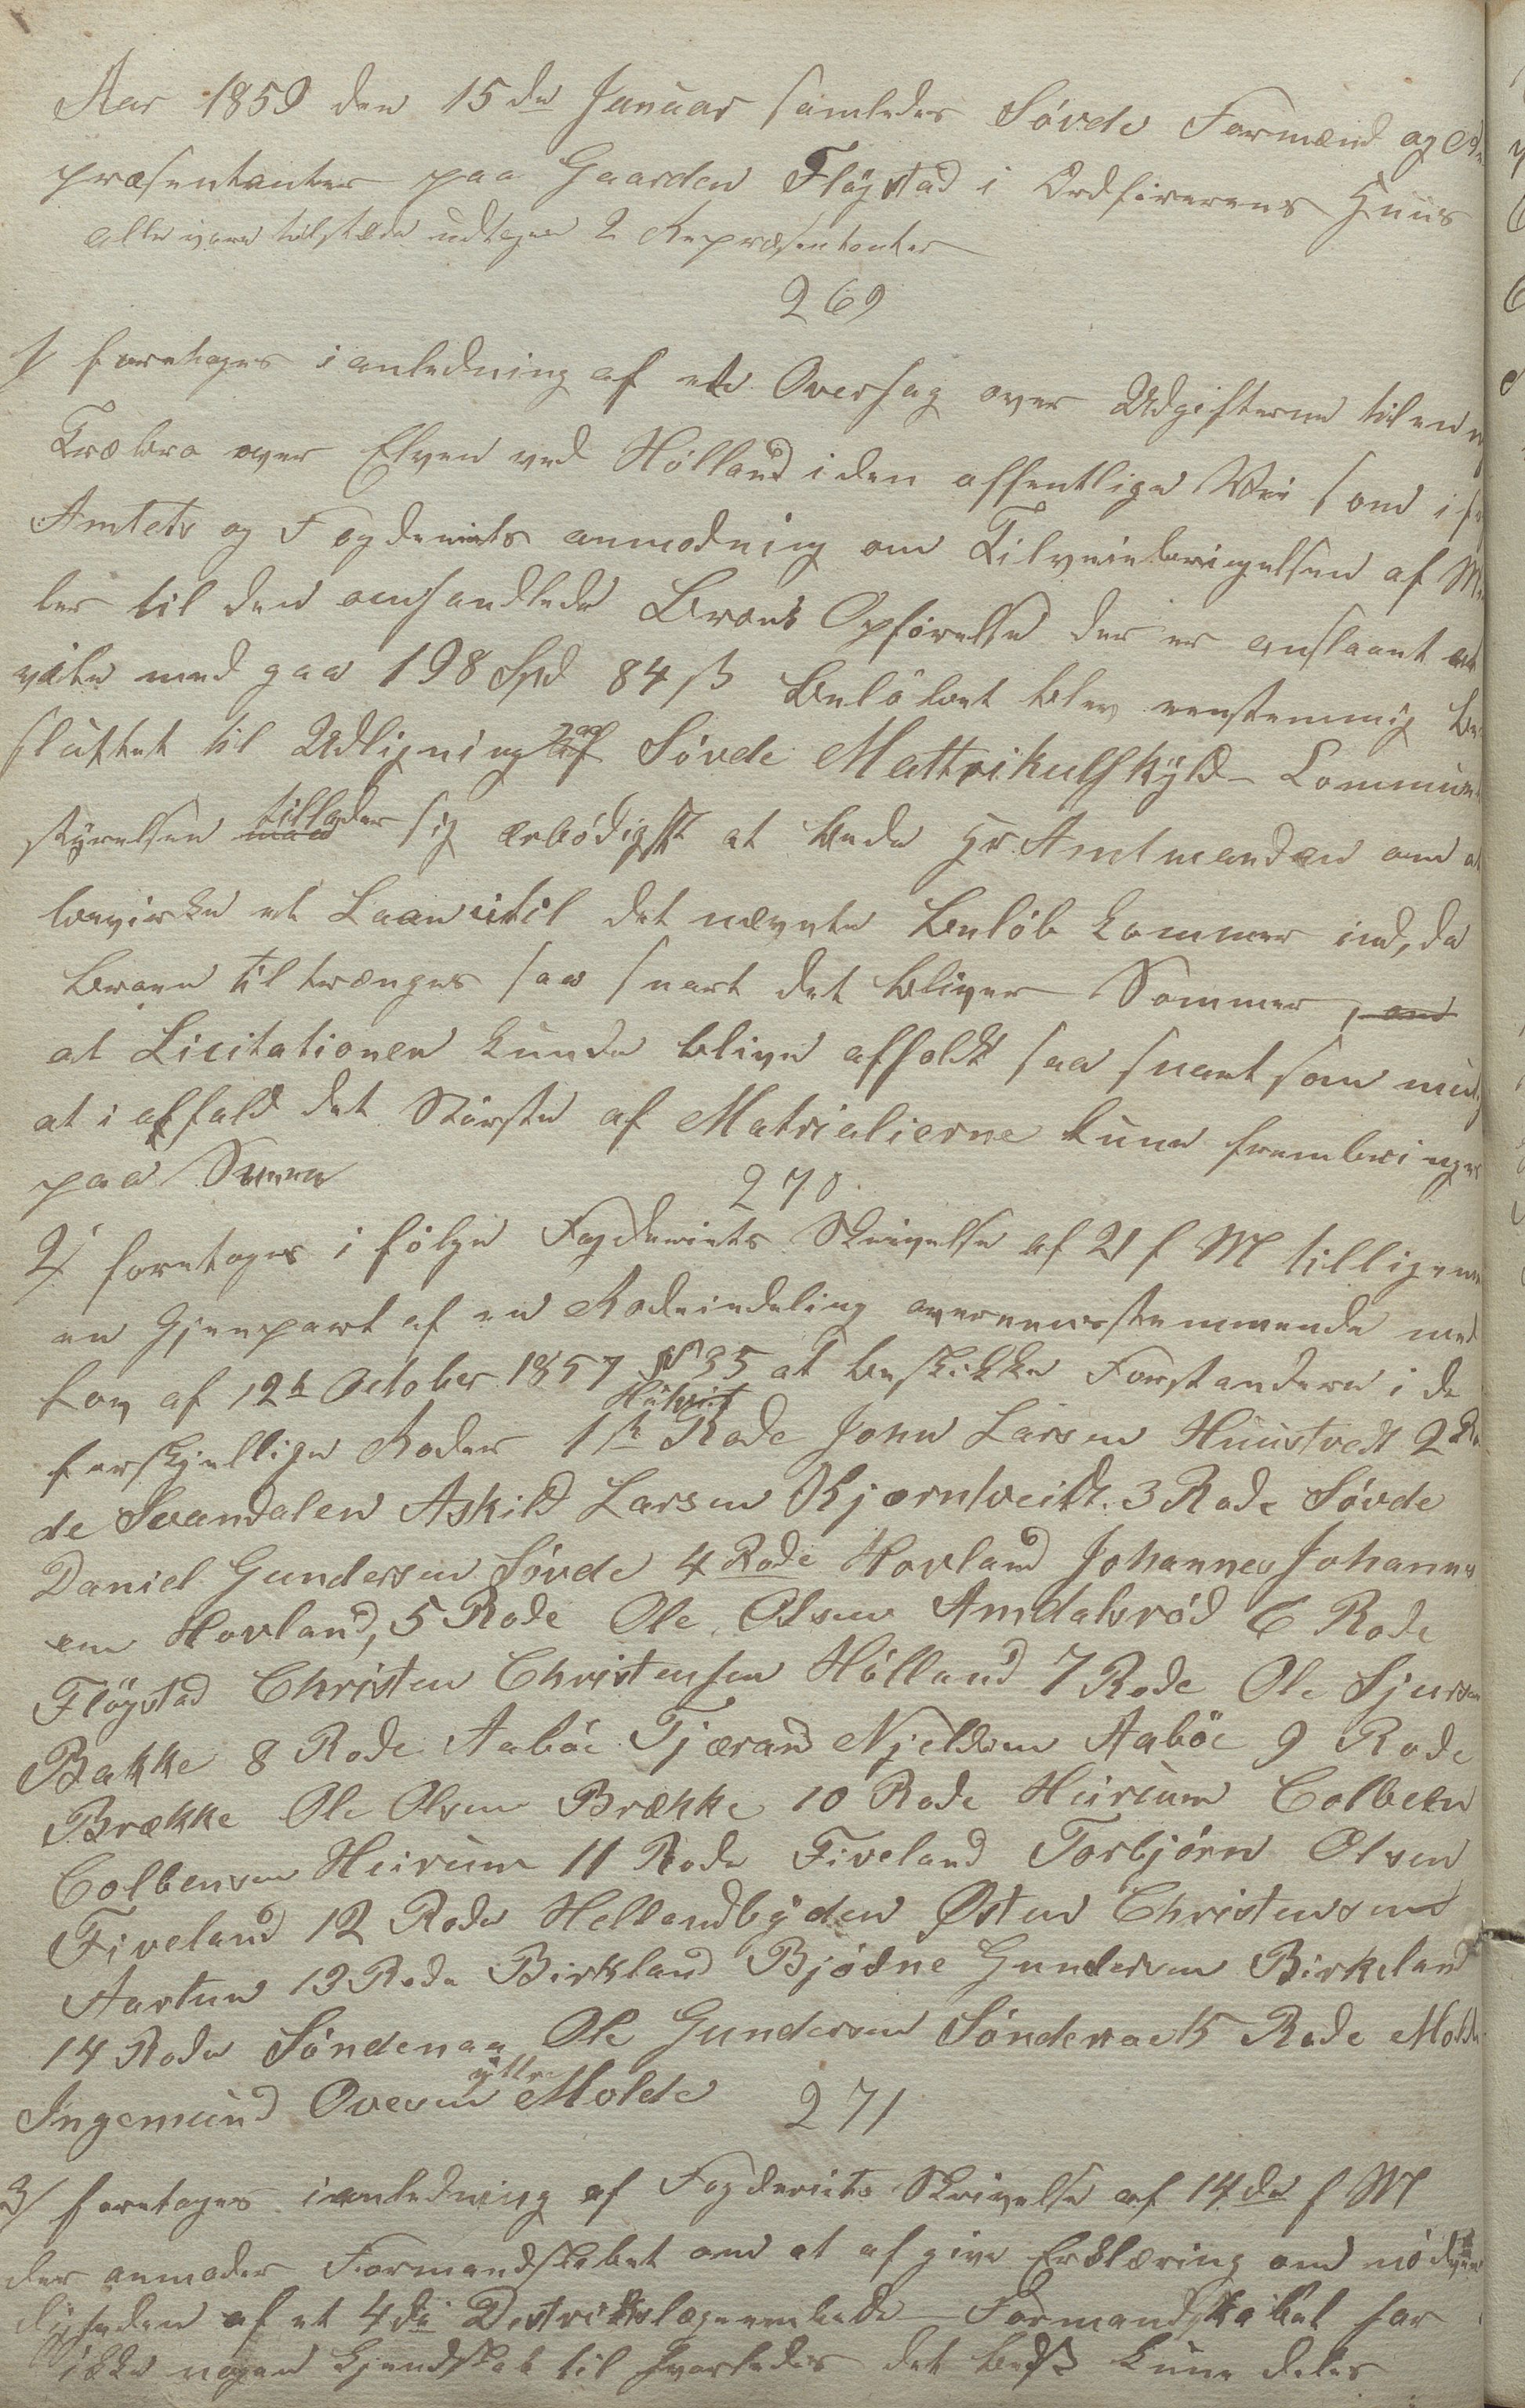 Aar 1859 den 15de Januar samledes Søvde Formænd og Re
præsentanter paa Gaarden Fløgstad i Ordførerens Huus
alle vare tilstæde udtagen 2 Repræsentanter
269
1/ foretages i anledning af et Overslag over Udgifterne til en ny
Træbro over Elven ved Hølland i den offentlige Vei som i føl
Amtets og Fogderiets anmodning om Tilveiebringelsen af Mi
ler til den omhandlede Broes Opførelse der er anslaaet at
ville med gaa 198 Spd 84 ß Beløbet blev eenstemmig be
sluttet til Udligning paa Søvde Mattrikulskyld - Commune
styrelsen tillader sig ærbødigst at bede Hr Amtmanden om at
bevirke et Laan indtil det nævnte Beløb kommer ind, da
Broen tiltrænges saa snart det bliver Sommer, and
at Licitationen kunde blive afholdt saa snart som mulig
at i alfald det Største af Matrialierne kune frembringes
paa Sneen
270
2/ foretages i følge Fogderiets Skrivelse af 21 f M tilligemed
en Gjenpart af en Rodeindeling overeensstemmende med
Lov af 12te October 1857 § 35 at beskikke Forstandere i de
forskjellige Roder 1ste Rode John Larsen Huustvedt 2den Ro
de Svandalen Askild Larsen Kjørntveidt. 3 Rode Søvde
Daniel Gundersen Søvde 4 Rode Hovland Johannes Johanne
sen Hovland, 5 Rode Ole Olsen Amdalsrød 6 Rode
Fløgstad Christen Christensen Hølland 7 Rode Ole Sjursen
Bakke 8 Rode Aabøe Tjærand Njeldsen Aabøe 9 Rode
Brække Ole Olsen Brække 10 Rode Heirum Colben
Colbensen Heirum 11 Rode Fiveland Torbjørn Olsen
Fiveland 12 Rode Hellandbygden Østen Christensen
Aartun 13 Rode Birkland Bjødne Gundersen Birkeland
14 Rode Søndenaa Ole Gundersen Søndenaa 15 Rode Molde
Ingemund Ovesen yttre Molde
271
3/ foretages i anledning af Fogderiets Skrivelse af 14de f M
der anmoder Formandskabet om at afgive Erklæring om nødven
digheden af et 4de Destriktslægeembede - Formandskabet har
ikke nogen Kjendskab til hvorledes det bedst kune deles